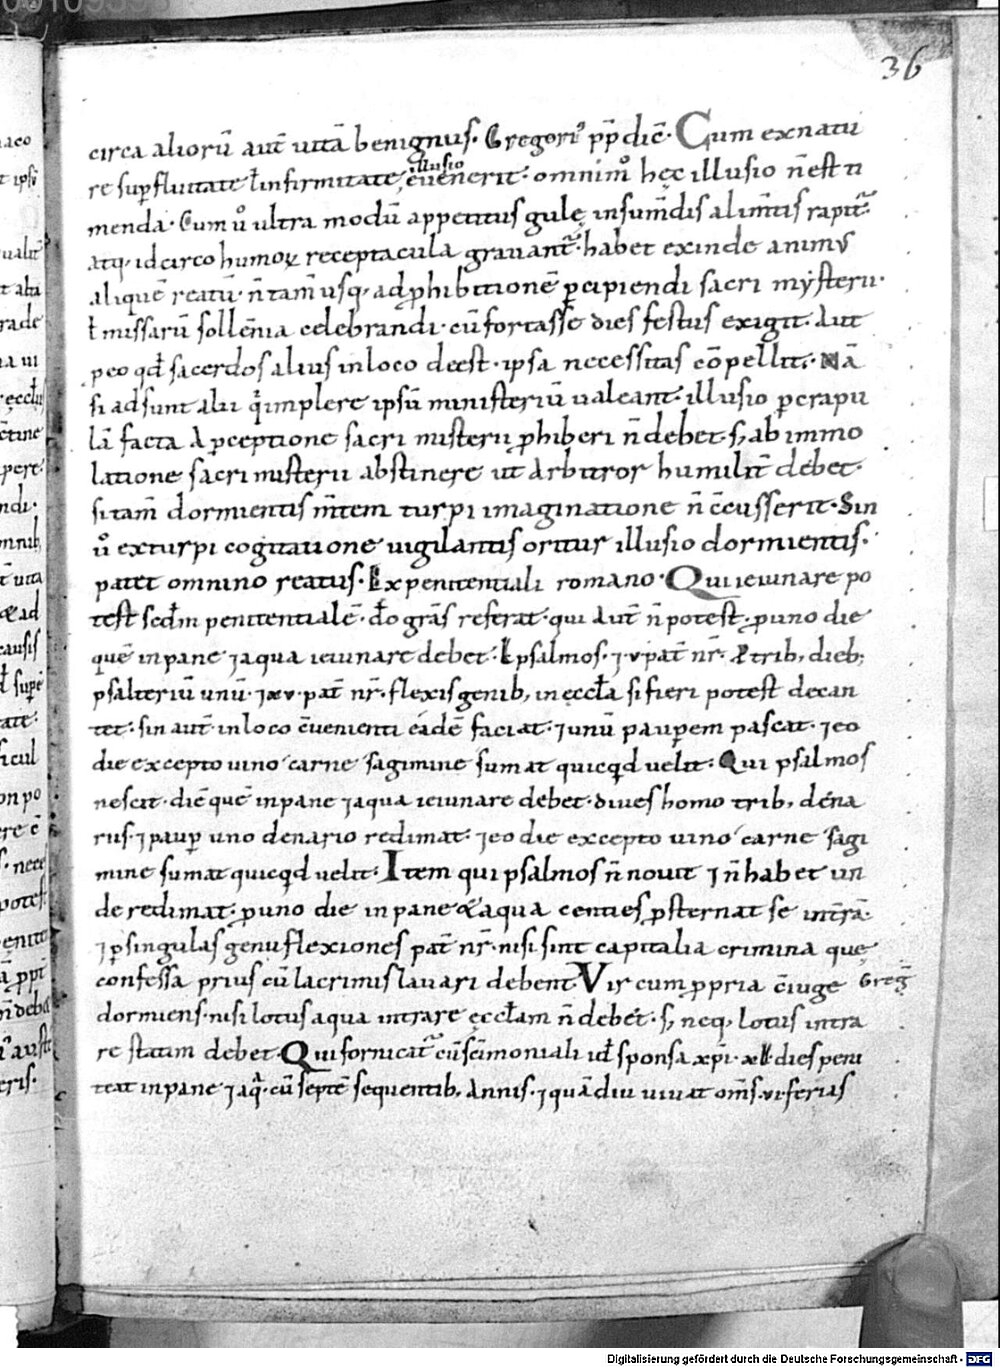 36
circa aliorū aut̄ uitā benignus. Gregori᷒ pp̄ dic̄. Cum ex natu
illusio
re suꝑfluitate ł infirmitate, euenerit. omnim̊ hęc illusio n̄ est ti
menda. Cum ů ultra modū appetitus gulę in sum̄dis alim̄tis rapit᷑.
atq, idcirco humoꝝ receptacula grauant᷑. habet exinde animus
aliquē reatū. n̄ tam̄ usq, ad ꝓhibitionē ꝑcipiendi sacri mysterii.
ł missarū sollēnia celebrandi. cū fortasse dies festus exigit. Aut
ꝑ eo qd̄ sacerdos alius in loco deest. ipsa necessitas cōpellit. Nā
si adsunt alii q̄ implere ipsū ministeriū ualeant. illusio ꝑ crapu
lā facta a ꝑceptione sacri misterii ꝓhiberi n̄ debet. s, ab immo
latione sacri misterii abstinere ut arbitror humilit̄ debet.
si tam̄ dormientis m̄tem turpi imaginatione n̄ c̄cusserit. Sin
ů ex turpi cogitatione uigilantis oritur illusio dormientis.
patet omnino reatus. Ex penitentiali romano. Qui ieiunare po
test scdm̄ penitentialē. dō grās referat. qui aut̄ n̄ potest. ꝓ uno die
quē in pane ⁊ aqua ieiunare debet. L psalmos. ⁊ v pat̄ nr̄. & trib, dieb;
psalteriū unū. ⁊ xv. pat̄ nr̄. flexis genib, in ęccła si fieri potest decan
tet. sin aut̄ in loco c̄uenienti eadē faciat. ⁊ unū pauꝑem pascat. ⁊ eo
die excepto uino carne sagimine sumat quicqd̄ uelit. Qui psalmos
nescit. diē quē in pane ⁊ aqua ieiunare debet. diues homo trib, dena
rus. ⁊ pauꝑ uno denario redimat. ⁊ eo die excepto uino carne sagi
mine sumat quicqd̄ uelit. Item qui psalmos n̄ nouit ⁊ n̄ habet un
de redimat. ꝓ uno die in pane & aqua centies ꝓsternat se in tr̄ā.
⁊ ꝑ singulas genuflexiones pat̄ nr̄. nisi sint capitalia crimina que
confessa prius cū lacrimis lauari debent. Vir cum ꝓpria c̄iuge
Greg̅
dormiens. nisi lotus aqua intrare ęccłam n̄ debet. s, neq, lotus intra
re statim debet. Qui fornicat᷑ cū sc̄imoniali id̄ sponsa xp̄i. xl dies peni
teat in pane ⁊ aq̄. cū septē sequentib, annis. ⁊ quādiu uiuat om̄s .vi. ferias
Digitalisierung gefördert durch die Deutsche Forschungsgemeinschaft - DFG